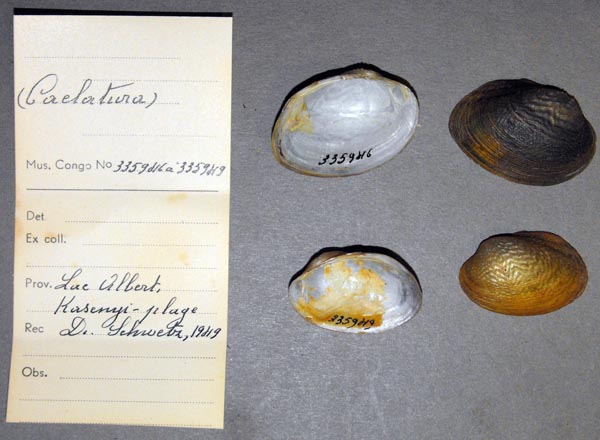 (Caelatura)
Mus. Congo No 335946 à 335949
Det
Ex coll.
Prov. Lac Albert,
Kasenyi-plage
Rec Dr. Schwetz, 1949
Obs.
335946
335949